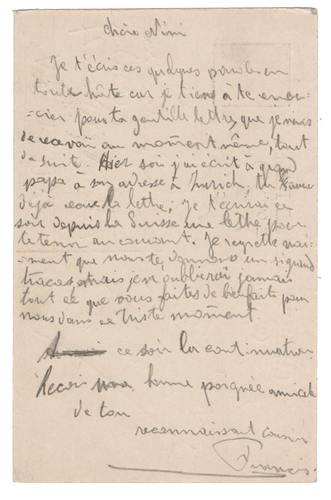 chère Nini
Je t'écris ces quelques paroles en
toute hâte car je tiens à te remer-
cier pour ta gentille lettre, que je viens
de recevoir au moment même, tout
de suite. Hier soir j'ai écrit à grand
papa à son adresse à Zurich, tu
déjà la lettre; je t'écrirai ce
soir depuis la Suisse une lettre pour
te tenir au courant. Je regrette vrai-
ment que nous te donnons un si grand
tracas mais je n'oublierai jamais
tout ce que vous faites de bienfaits pour
nous dans ce triste moment.
ce soir la continuation
Reçois une bonne poignée amicale
de ton
reconnaissant cousin
Francis